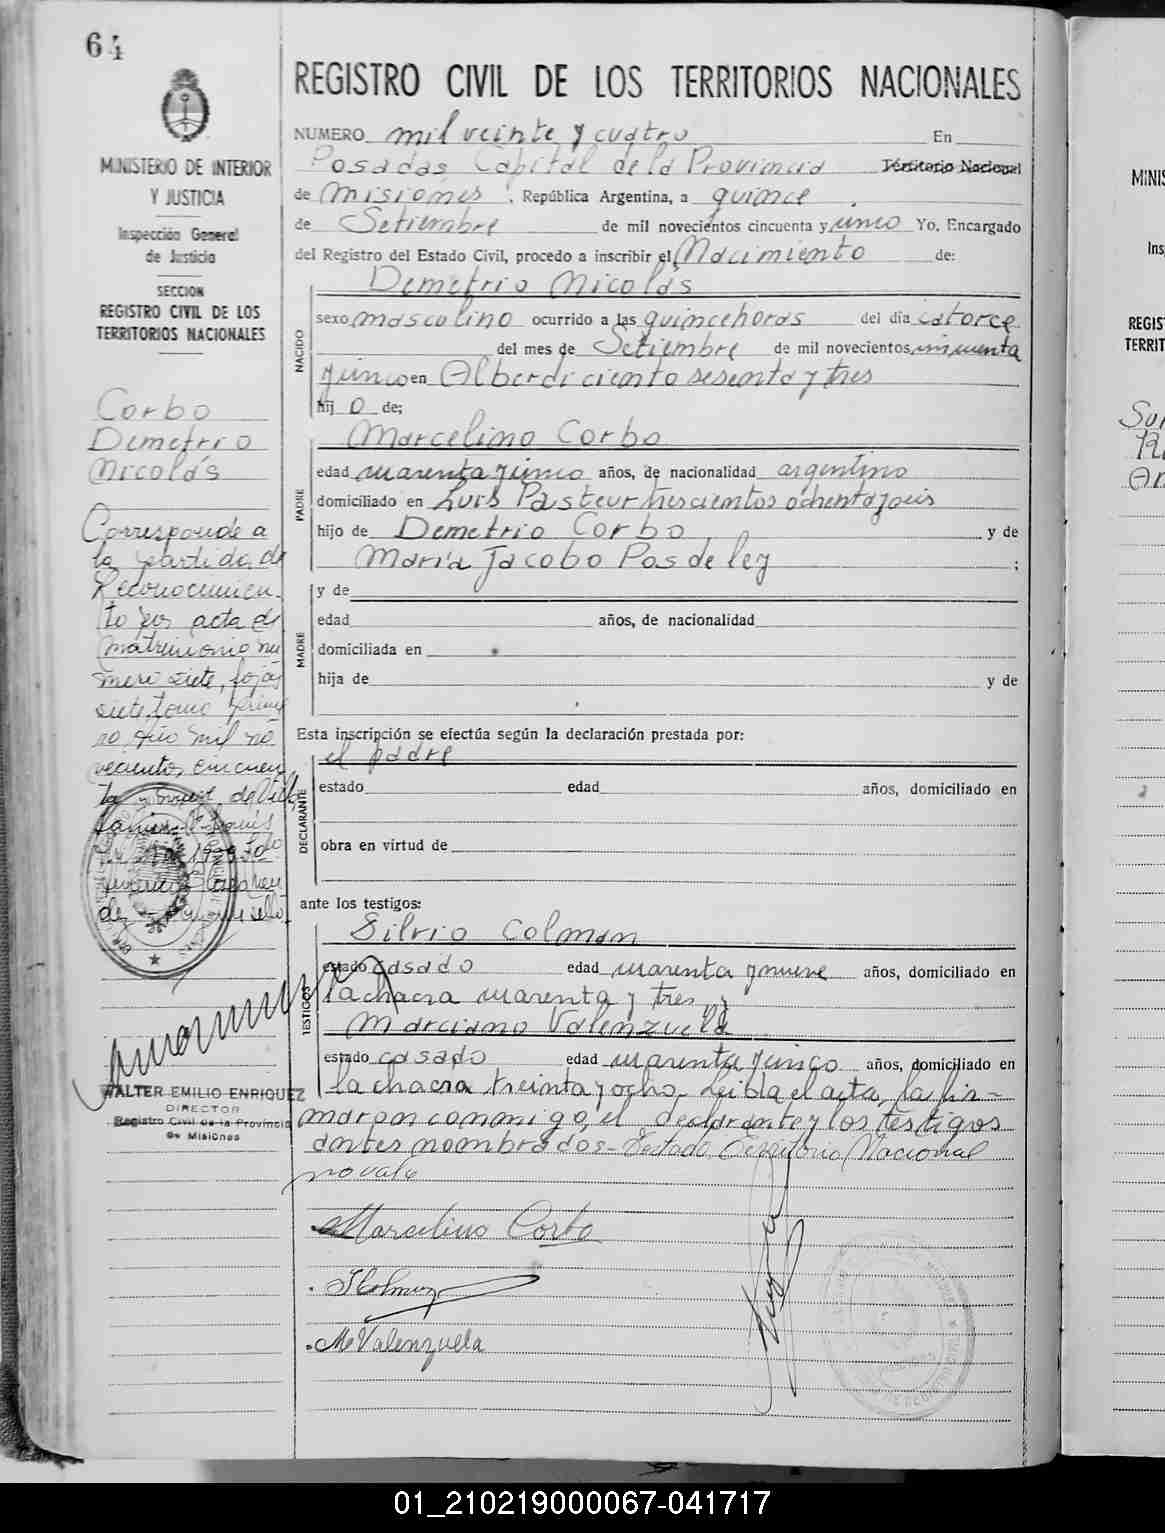 64
MINISTERIO DE INTERIOR
Y JUSTICIA
Inspección General
de Justicia
SECCION
REGISTRO CIVIL DE LOS
TERRITORIOS NACIONALES
Corbo
Demetrio
Nicolás
Corresponde a
la partida de
Reconocimien-
to por acta de
matrimonio nu
mero siete, fojas
siete, tomo prime
ro, año mil no
vecientos cincuen
WALTER EMILIO ENRIQUEZ
DIRECTOR
Registro Civil de la Provincia
de Misiones
REGISTRO CIVIL DE LOS TERRITORIOS NACIONALES
NUMERO mil veinte y cuatro En
Posadas, Capital de la Provincia Territorio Nacional
de Misiones, República Argentina, a quince
de Setiembre de mil novecientos cincuenta y cinco Yo, Encargado
del Registro del Estado Civil, procedo a inscribir el Nacimiento de:
Demetrio Nicolás
NACIDO
sexo masculino ocurrido a las quince horas del día catorce
del mes de Setiembre de mil novecientos cincuenta
y cinco en Alberdi ciento sesenta y tres
hijo de;
Marcelino Corbo
PADRE
edad cuarenta y cinco años, de nacionalidad argentino
domiciliado en Luis Pasteur trescientos ochenta y seis
hijo de Demetrio Corbo y de
María Jacobo Posdeley ;
MADRE
y de
edad años, de nacionalidad
domiciliada en
hija de y de
Esta inscripción se efectúa según la declaración prestada por:
el padre
DECLARANTE
estado edad años, domiciliado en
obra en virtud de
ante los testigos:
Silvio Colman
TESTIGOS
estado casado edad cuarenta y nueve años, domiciliado en
la chacra cuarenta y tres, y
Marciano Valenzuela
estado casado edad cuarenta y cinco años, domiciliado en
la chacra treinta y ocho. Leida el acta, la fir-
maron conmigo, el declarante y los testigos
antes nombrados - Testado: Territorio Nacional
no vale
Marcelino Corbo
SColman
M Valenzuela
MINIS
Ins
REGIS
TERRIT
01_210219000067-041717